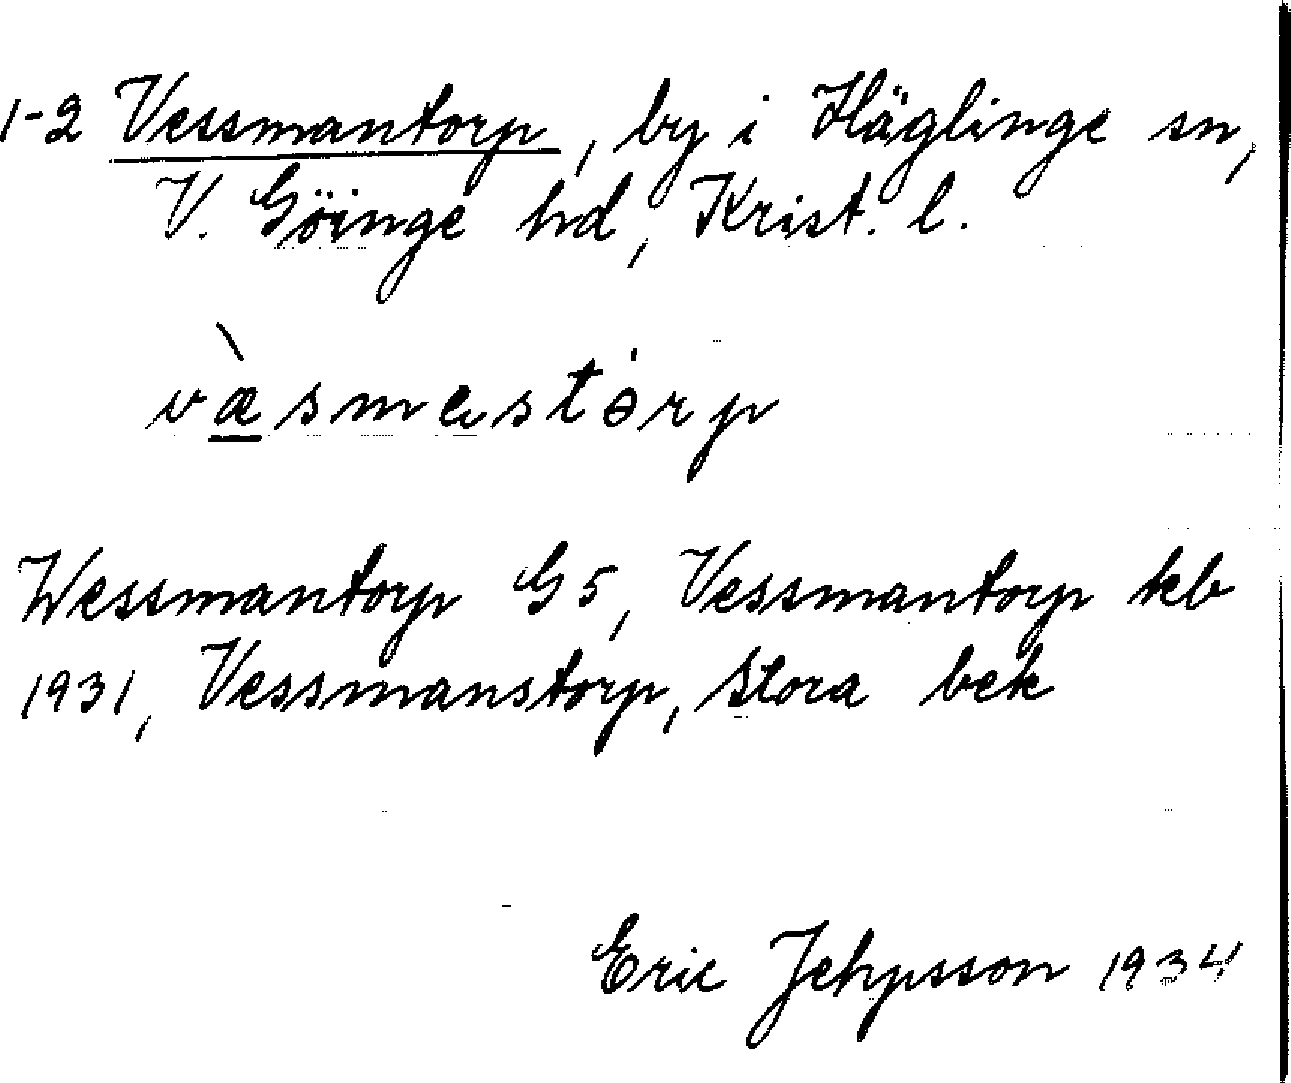 1-2 Vessmantorp, by i Häglinge sn,
V. Göinge hd, Krist. l.
væ̀smastȯrp
Wessmantorp G5, Vessmantorp kb
1931, Vessmanstorp, Stora bek
Eric Jehpsson 1934